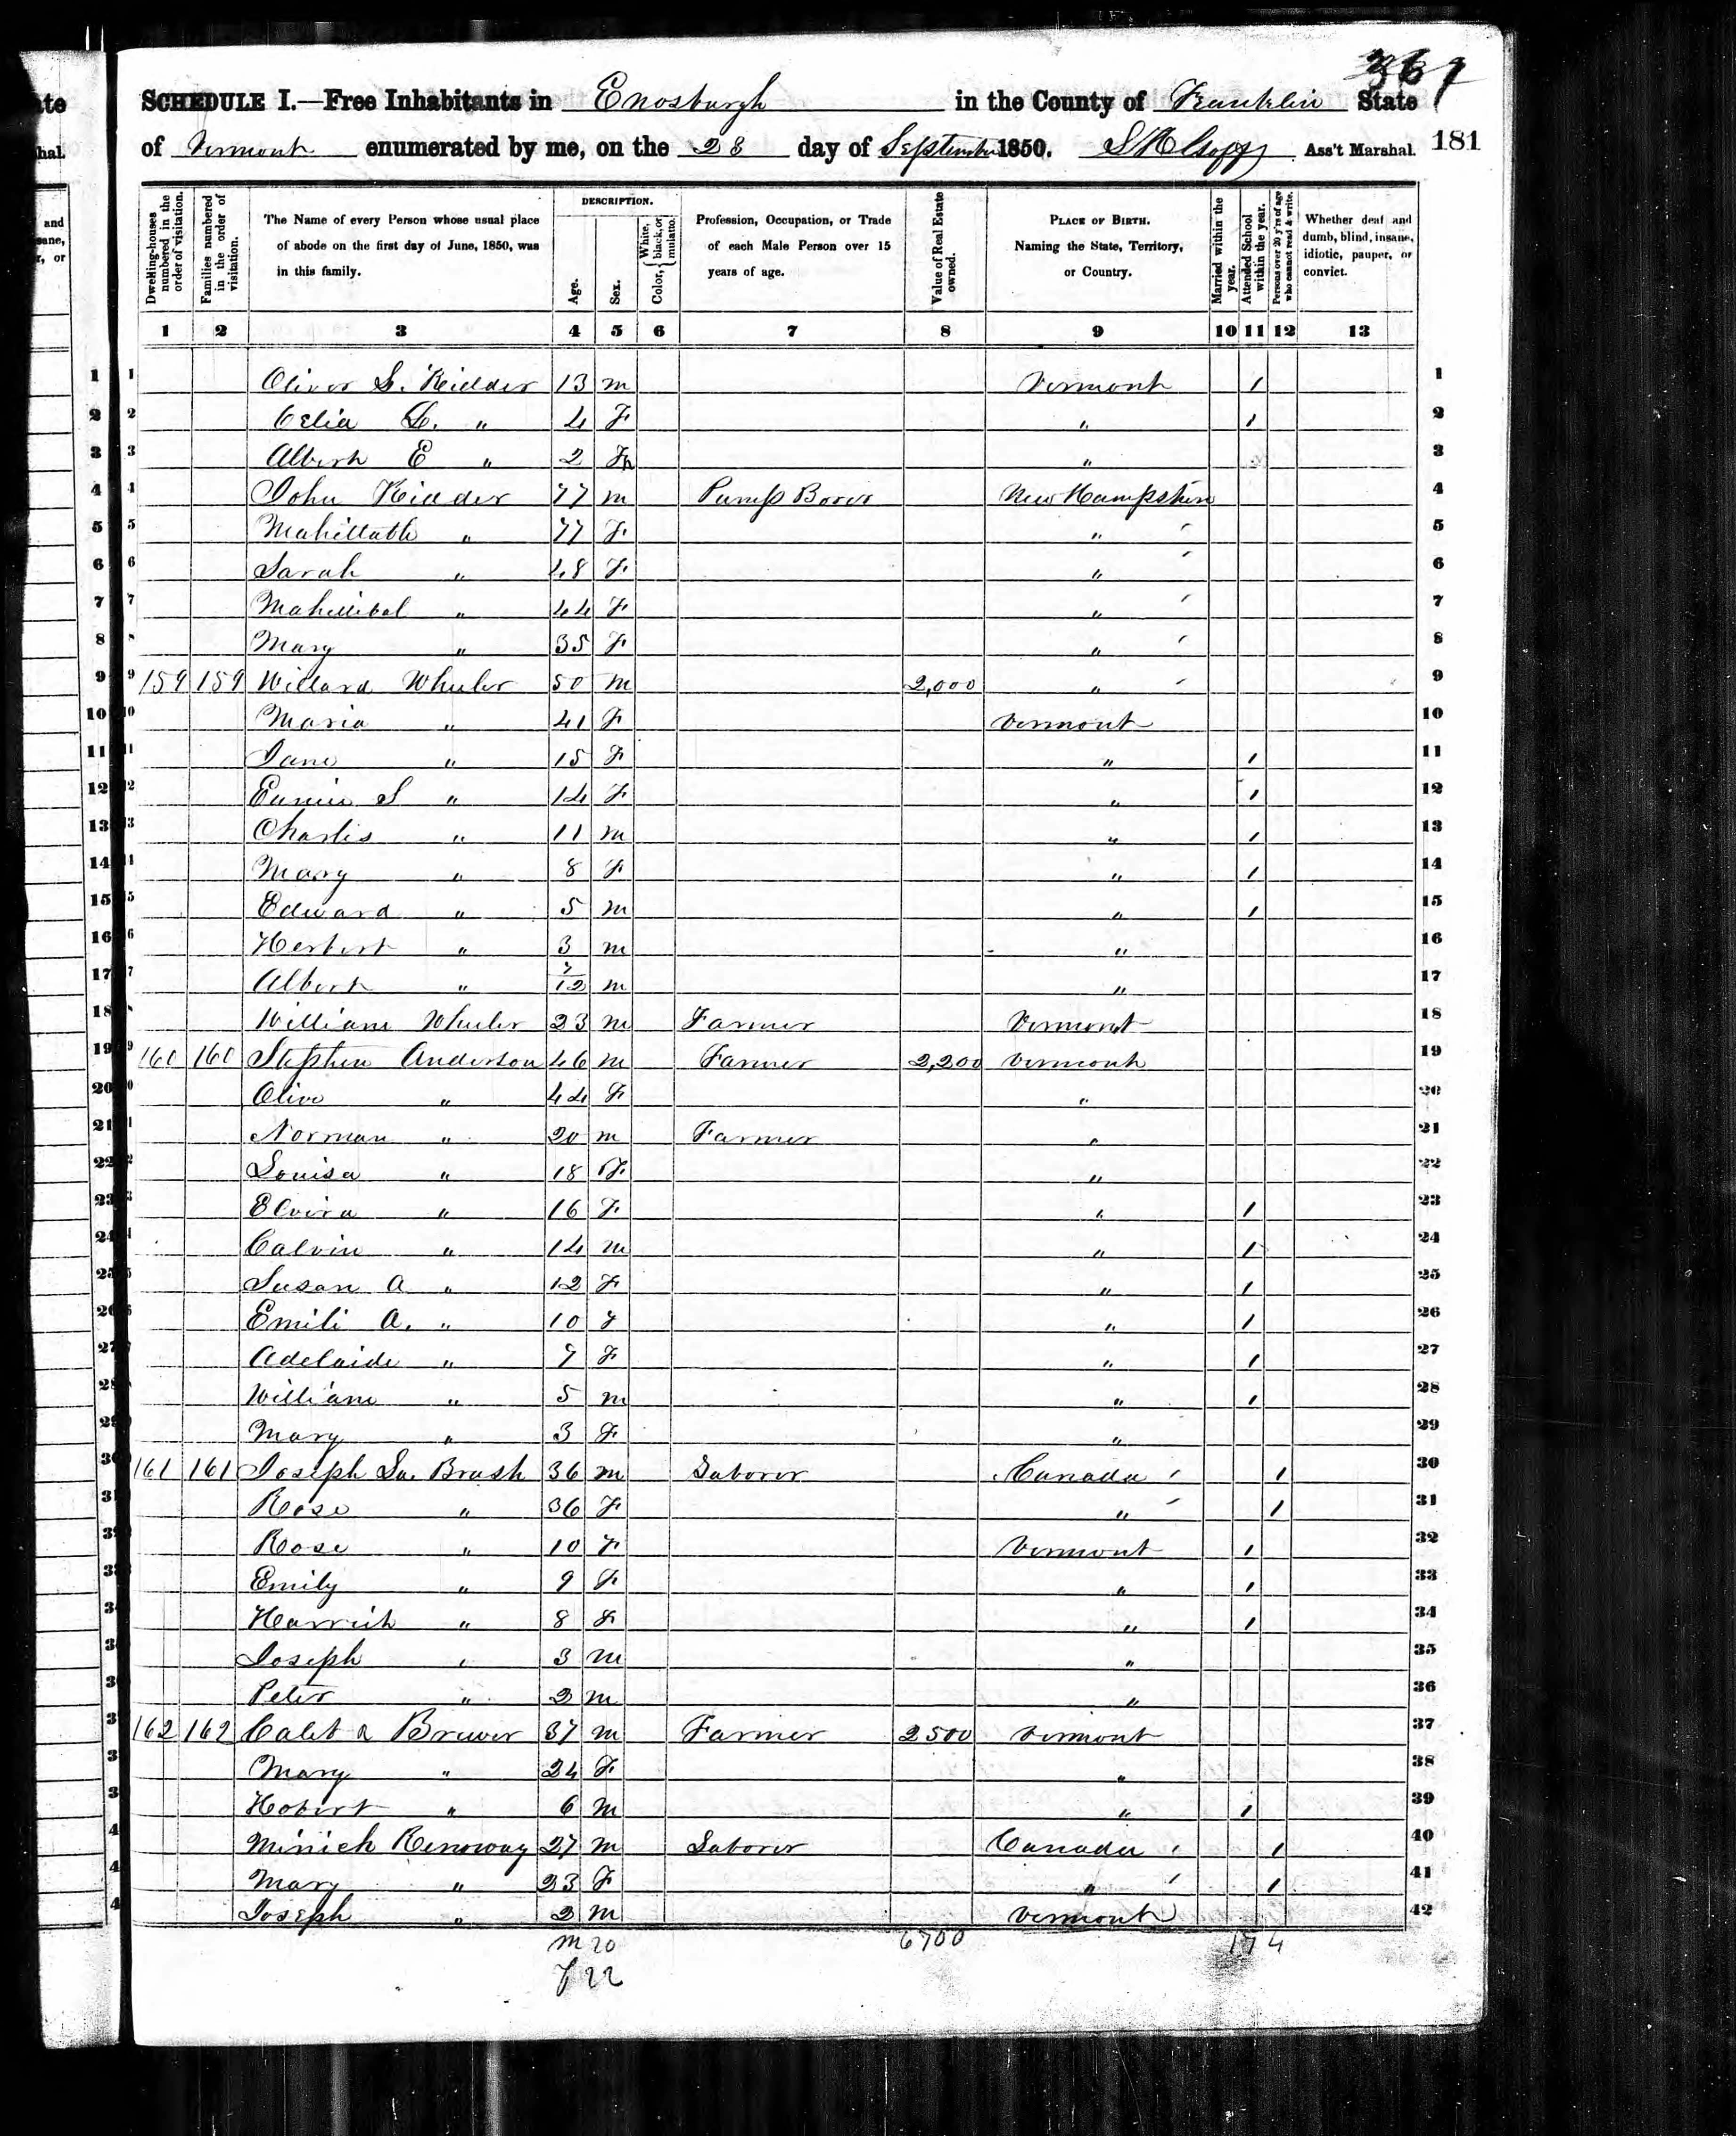 367
SCHEDULE I.—Free Inhabitants in Enosburgh in the County of Franklin State
of Vermont enumerated by me, on the 28 day of September 1850. Ass't Marshal. 181
Dwelling-houses numbered in the order of visitation. Families numbered in the order of visitation. The Name of every Person whose usual place of abode on the first day of June, 1850, was in this family. DESCRIPTION. Age. Sex. Color, White, black, or mulatto. Profession, Occupation, or Trade of each Male Person over 15 years of age. Value of Real Estate owned. PLACE OF BIRTH. Naming the State, Territory, or Country. Married within the year. Attended School within the year. Persons over 20 y'rs of age who cannot read & write. Whether deaf and dumb, blind, insane, idiotic, pauper, or convict.
1 2 3 4 5 6 7 8 9 10 11 12 13
1 Oliver S. Kidder 13 m Vermont 1 1
2 Celia L. " 4 F " 1 2
3 Albert E " 2 " 3
4 John Kidder 77 m Pump Borer New Hampshire 4
5 Mahittable " 77 F " 5
6 Sarah " 48 F " 6
7 Mahittibal " 44 F " 7
8 Mary " 35 F " 8
9 159 159 Willard Wheeler 50 m 2,000 " 9
10 Maria " 41 F Vermont 10
11 Jane " 15 F " 1 11
12 Eunice S " 14 F " 1 12
13 Charles " 11 m " 1 13
14 Mary " 8 F " 1 14
15 Edward " 5 m " 1 15
16 Herbert " 3 m " 16
17 Albert " 7/12 m " 17
18 William Wheeler 23 m Farmer Vermont 18
19 160 160 Stephen Anderson 46 m Farmer 2,200 Vermont 19
20 Olive " 44 F " 20
21 Norman " 20 m Farmer " 21
22 Louisa " 18 F " 22
23 Elvira " 16 F " 1 23
24 Calvin " 14 m " 1 24
25 Susan A " 12 F " 1 25
26 Emili A. " 10 F " 1 26
27 Adelaide " 7 F " 1 27
28 William " 5 m " 1 28
29 Mary " 3 F " 29
30 161 161 Joseph La. Brash 36 m Laborer Canada 1 30
31 Rose " 36 F " 1 31
32 Rose " 10 F Vermont 1 32
33 Emily " 9 F " 1 33
34 Harriet " 8 F " 1 34
35 Joseph " 3 m " 35
36 Peter " 2 m " 36
37 162 162 Brewer 37 m Farmer 2500 Vermont 37
38 Mary " 24 F " 38
39 Hobert " 6 m " 1 39
40 Renoway 27 m Laborer Canada 1 40
41 Mary " 23 F " 1 41
42 Joseph " 2 m Vermont 42
m 20 6700 17 4
F 22